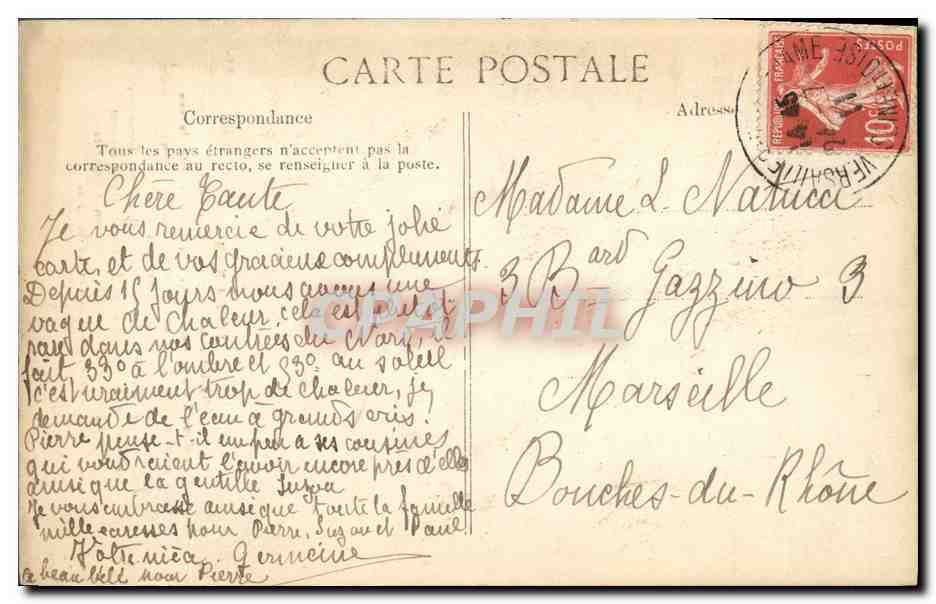 CARTE POSTALE
Correspondance
Tous les pays étrangers n'acceptent pas la
correspondance au recto, se renseigner à la poste.
Chère Tante
Je vous remercie de votre jolie
carte, et de vos gracieux compliments.
Depuis 15 jours nous avons une
vague de chaleur, cela est plutôt
rare dans nos contrées du Nord, il
fait 33° à l'ombre et 53° au soleil
c'est vraiment trop de chaleur, je
demande de l'eau à grands cris!
Pierre pense-t-il un peu a ses cousines
qui voudraient l'avoir encore près d'elles
ainsi que la gentille Suzon
Je vous embrasse ainsi que toute la famille
mille caresses pour Pierre, Suzon et Paul
Votre nièce Germeine
ce beau bébé pour Pierre
Adresse
Madame L. Natucci
3 Bard Gazzino 3
Marseille
Bouches-du-Rhône
POSTES
REPUBLIQUE FRANÇAISE
10c
VERSAILLES
CPAPHIL